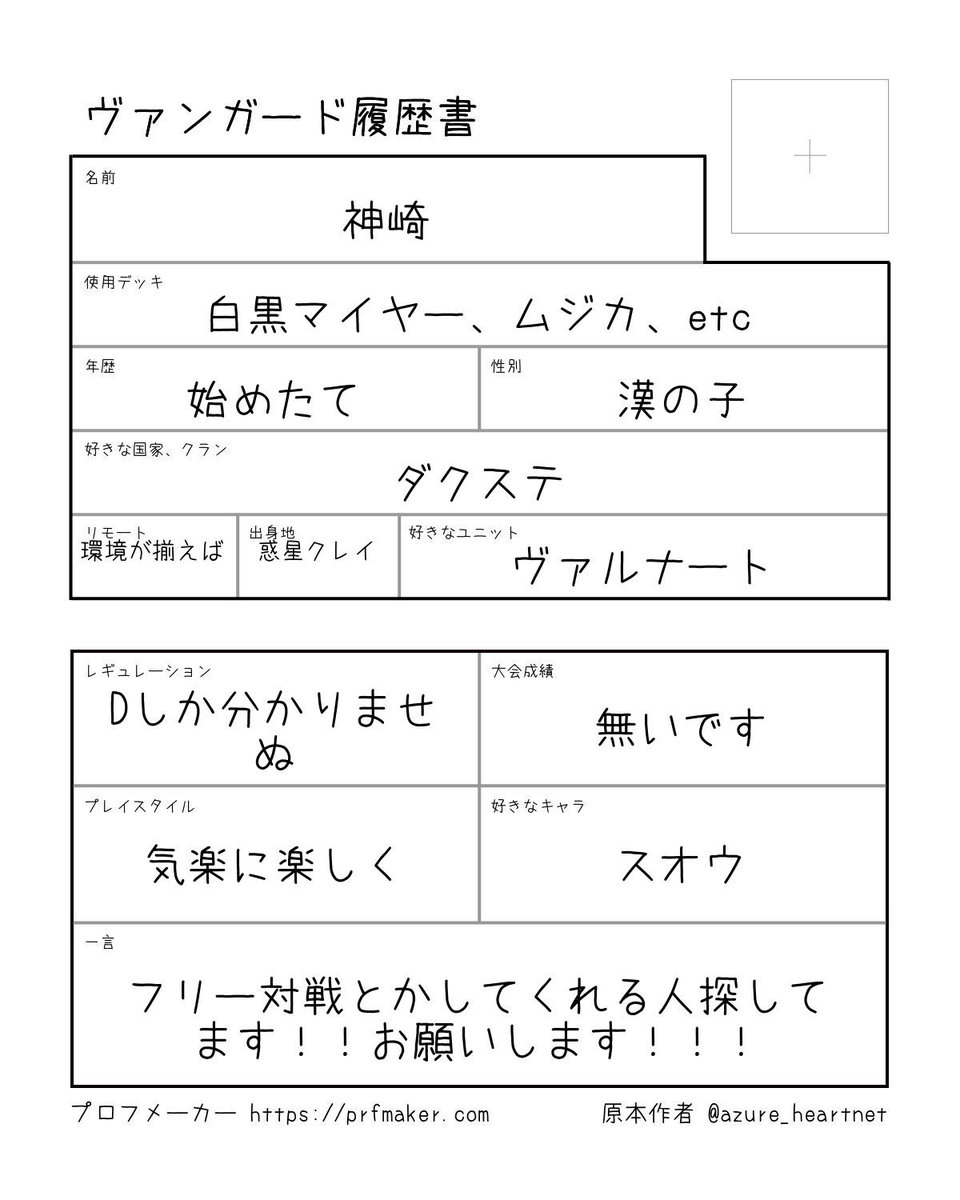 ヴァンガード履歴書
名前
神崎
使用デッキ
白黒マイヤー、ムジカ、etc
年歴
始めたて
性別
漢の子
好きな国家、クラン
ダクステ
リモート
環境が揃えば
出身地
惑星クレイ
好きなユニット
ヴァルナート
レギュレーション
Dしか分かりませ
ぬ
大会成績
無いです
プレイスタイル
気楽に楽しく
好きなキャラ
スオウ
一言
フリー対戦とかしてくれる人探して
ます！！お願いします！！！
プロフメーカー https://prfmaker.com
原本作者 @azure_heartnet